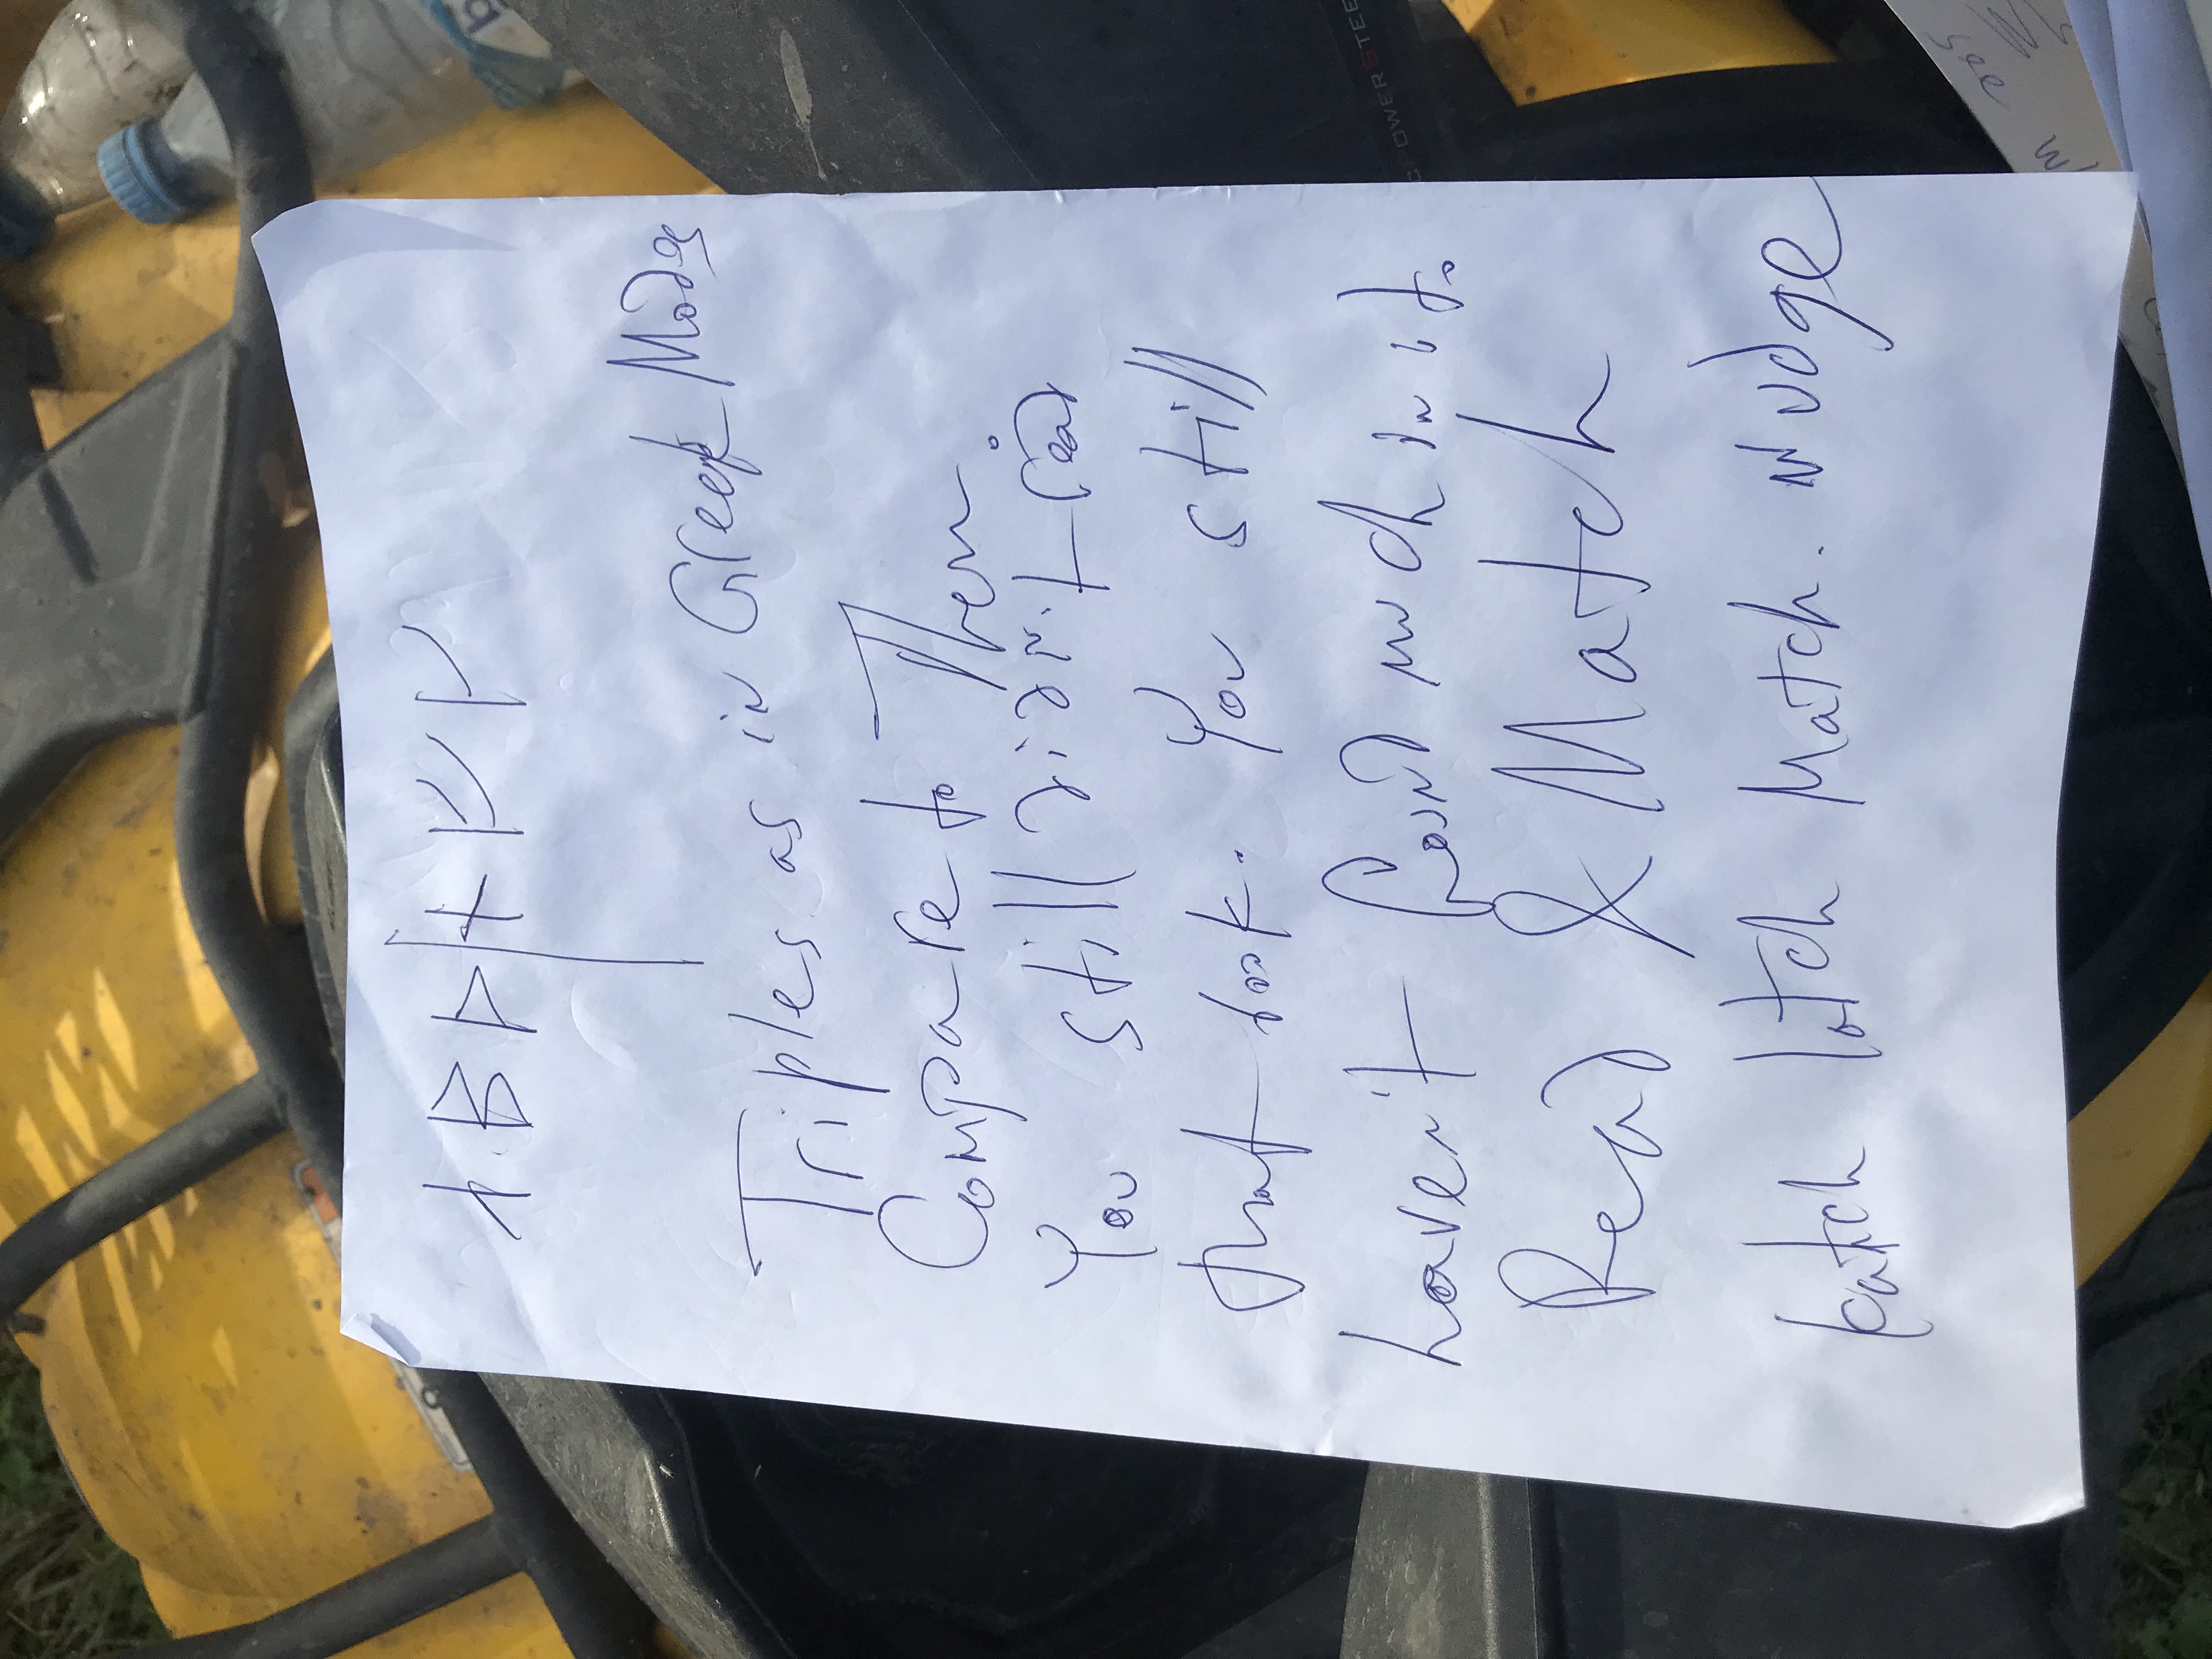 ᛒ ᚦ | ᚾ ᚠ ᚴ
Triples as in Greek Modes
Compare to Them.
You still didn't read
that book. You still
haven't found much in it.
Read & Match
katch latch Match. Nudge
POWERSTEE